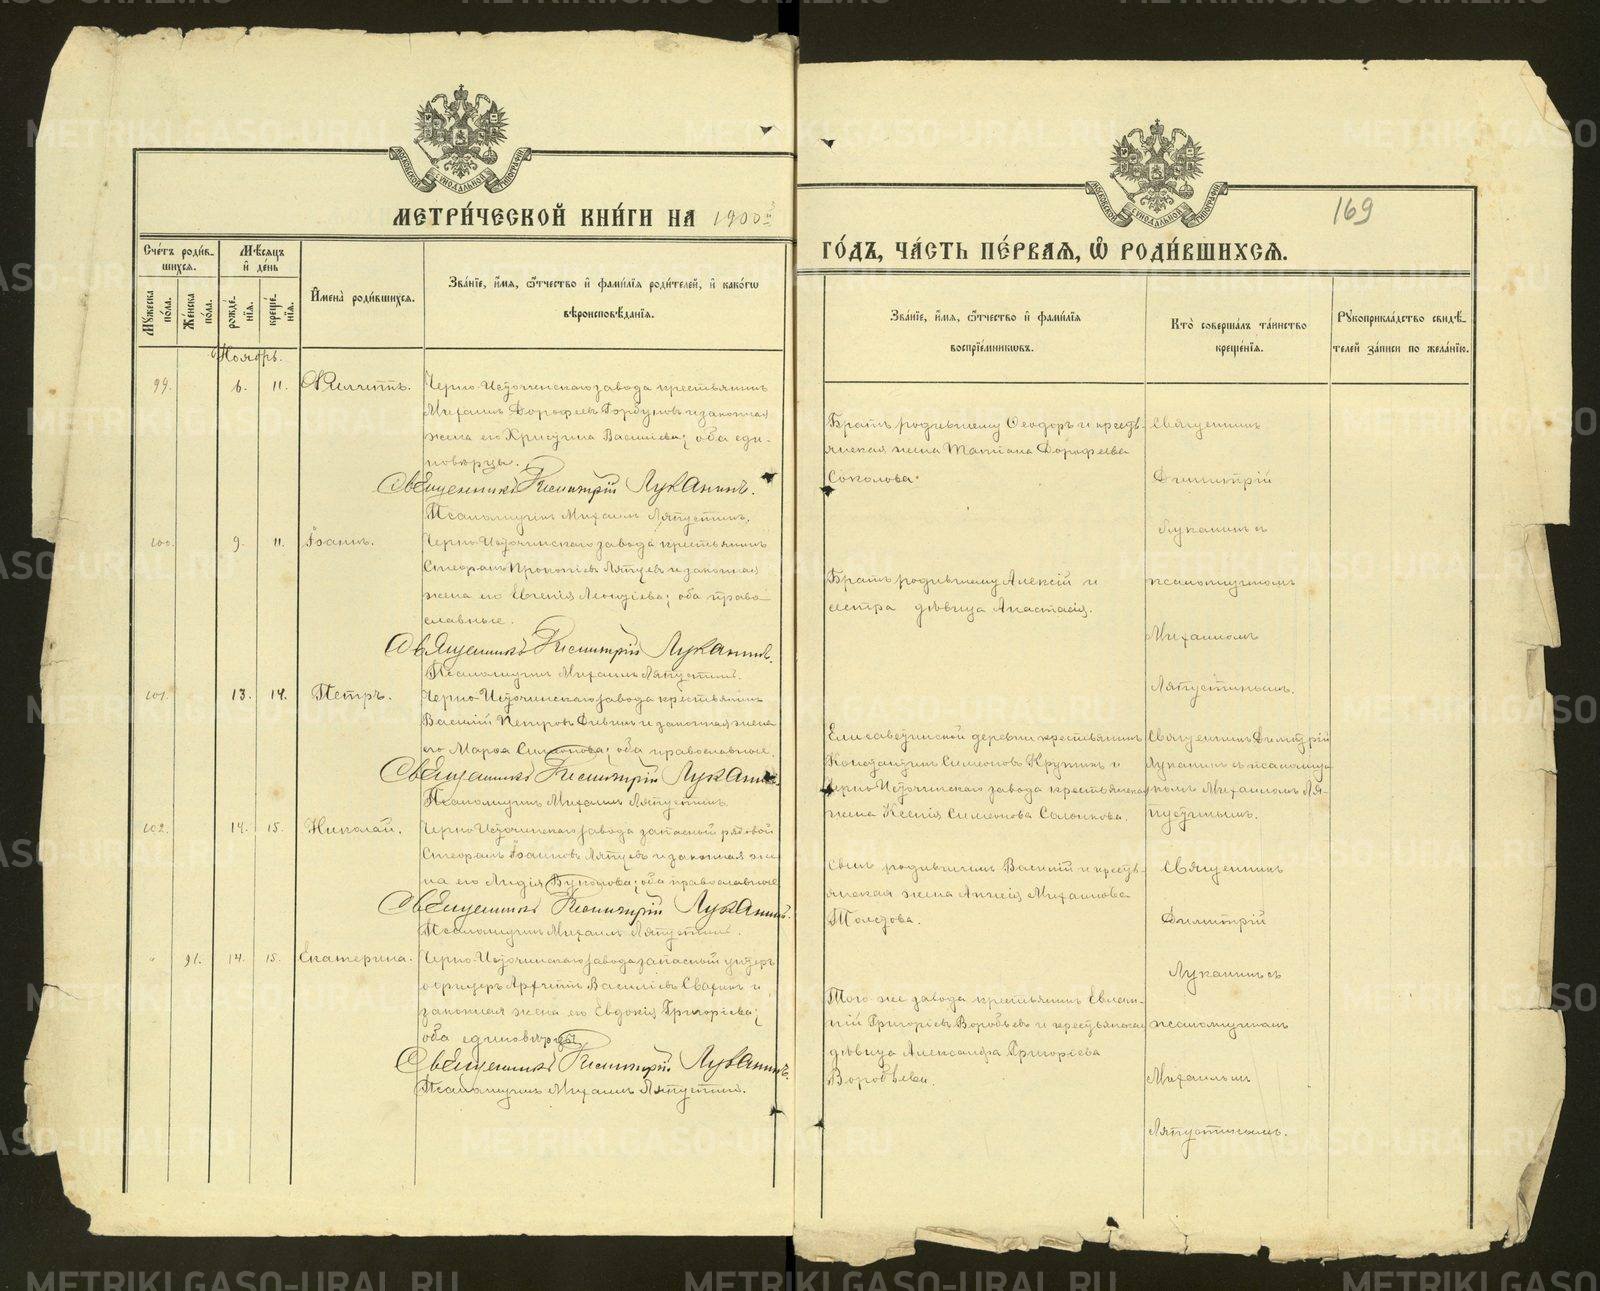 МЕТРИ́ЧЕСКОЙ КНИ́ГИ НА 1900й
ГО́ДЪ, ЧА́СТЬ ПЕ́РВАЯ, Ѽ РОДИ́ВШИХСЯ.
169
МОСКОВСКОЙ СѴНОДАЛЬНОЙ ТИПОГРАФІИ
МОСКОВСКОЙ СѴНОДАЛЬНОЙ ТИПОГРАФІИ
Сче́тъ роди́в-
шихся.
Мꙋ́жеска по́ла.
Же́нска по́ла.
Мѣ́сяцъ и҆ де́нь
рожде́нїя.
креще́нїя.
И҆мена̀ роди́вшихся.
Зва́нїе, и҆́мя, ѻ҆́тчество и҆ фами́лїя роди́телей, и҆ како́гѡ
вѣроисповѣ́данїя.
Зва́нїе, и҆́мя, ѻ҆́тчество и҆ фами́лїя
воспрїе́мникѡвъ.
Кто̀ соверша́лъ та́инство
креще́нїя.
Рꙋкоприкла́дство свидѣ́-
телей за́писи по жела́нїю.
Ноябрь.
99. 6. 11. Филиппъ.
Черно-Источинскаго завода крестьянинъ
Михаилъ Дорофеевъ Горбуновъ и законная
жена его Христина Васильева; оба еди-
новѣрцы.
Священникъ Димитрій Луканинъ.
Псаломщикъ Михаилъ Ляпустинъ.
Братъ родившему Ѳеодоръ и кресть-
янская жена Татіана Дорофеева
Соколова.
Священникъ
Димитрій
Луканинъ съ
псаломщикомъ
Михаиломъ
Ляпустинымъ.
100. 9. 11. Іоаннъ.
Черно-Источинскаго завода крестьянинъ
Стефанъ Прокопіевъ Ляпцевъ и законная
жена его Евгенія Леонтіева; оба право-
славные.
Священникъ Димитрій Луканинъ.
Псаломщикъ Михаилъ Ляпустинъ.
Братъ родившему Алексій и
сестра дѣвица Анастасія.
101. 13. 14. Петръ.
Черно-Источинскаго завода крестьянинъ
Василій Петровъ и законная жена
его Марѳа Симеонова; оба православные.
Священникъ Димитрій Луканинъ.
Псаломщикъ Михаилъ Ляпустинъ.
Елисаветинской деревни крестьянинъ
Константинъ Симеоновъ и
Черно-Источинскаго завода крестьянская
жена Ксенія Симеонова Солонкова.
Священникъ Димитрій
Луканинъ съ псаломщи-
комъ Михаиломъ Ля-
пустинымъ.
102. 14. 15. Николай.
Черно-Источинскаго завода запасный рядовой
Стефанъ Іоанновъ Ляпцевъ и законная же-
на его Лидія Викторова; оба православные
Священникъ Димитрій Луканинъ.
Псаломщикъ Михаилъ Ляпустинъ.
Сынъ родившихъ Василій и кресть-
янская жена Михаилова
Толстова.
Священникъ
Димитрій
Луканинъ съ
псаломщикомъ
Михаиломъ
Ляпустинымъ.
" 91. 14. 15. Екатерина.
Черно-Источинскаго завода запасный унтеръ
офицеръ Василіевъ и
законная жена его Евдокія Григоріева;
оба единовѣрцы
Священникъ Димитрій Луканинъ.
Псаломщикъ Михаилъ Ляпустинъ.
Того же завода крестьянинъ Евлам-
пій Григоріевъ Воробьевъ и крестьянская
дѣвица Александра Григоріева
Воробьева.
METRIKI.GASO-URAL.RU